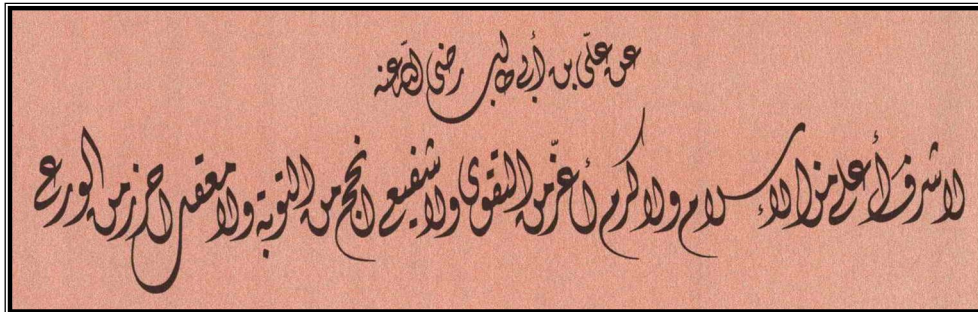 عن علّى بن أبى طالب رضى الله عنه
لا شرفَ أعلى من الإسلام ولا كرم أعزّ من التقوى ولا شفيع انجح من التوبة ولا معقل احرز من الورع